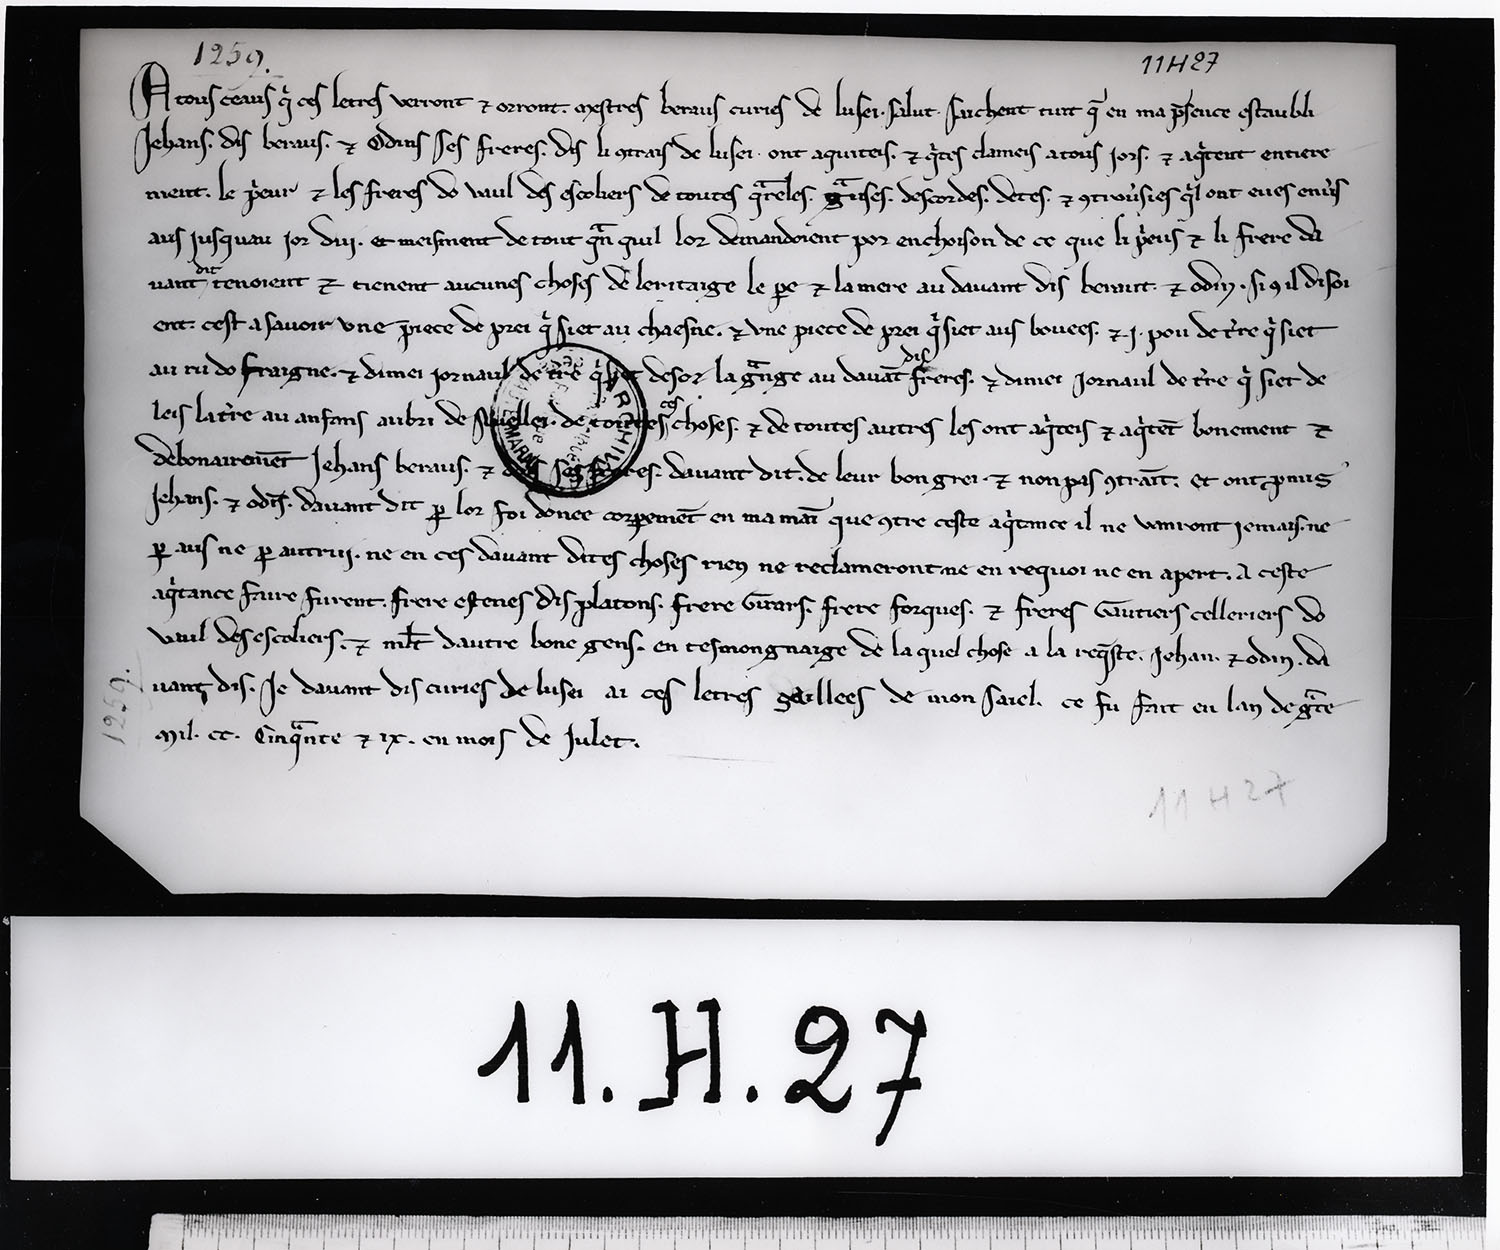 1259.
11H27
A tous ceaus q' ces letres verront ⁊ orront. mestres beraus curies de lusei. salut. Saichent tuit q̃ en ma p̃sence estaubli
Jehans. dis beraus. ⁊ Odins ses freres. dis li 9trais de lusei. ont aquiteis. ⁊ q'tes clameis a tous jors. ⁊ aq'tent entiere
ment. le p'eur ⁊ les freres do vaul des escoliers de toutes q̃reles. descordes. detes. ⁊ 9trov'sies q'l ont eues envers
aus jusquau jor dui. et meisment de tout q̃n quil lor demandoient por enchoison de ce que li p'eus ⁊ li frere da
vant dit tenoient ⁊ tienent aucunes choses de leritaige le pe ⁊ la mere au davant dis beraut. ⁊ odin. si 9 il disoi
ent. cest a savoir une piece de prei q' siet au chaesne. ⁊ une piece de prei q' siet aus bouees. ⁊ j. pou de t're q' siet
au ru do fraigne. ⁊ dimei jornaul de t're q' siet desor la gñnge au davãt dis freres. ⁊ dimei jornaul de t're q' siet de
leis la t're au anfans aubri de de toutes ces choses. ⁊ de toutes autres les ont aq'teis ⁊ aq'tẽt bonement ⁊
debonairemẽt Jehans beraus. ⁊ ses freres. davant dit. de leur bon grei. ⁊ non pas 9trãit. et ont p̃mis
Jehans. ⁊ odĩs. davant dit ꝑ lor foi donee corꝑemẽt en ma mai que 9tre ceste aq'tance il ne vanront jemais. ne
ꝑ aus ne ꝑ autrui. ne en ces davant dites choses rien ne reclameront. ne en requoi ne en apert. A ceste
aq'tance faire furent. frere estenes dis platons. frere Girars. frere forques. ⁊ freres Gautiers celleriers do
vaul des escoliers. ⁊ ml't dautre bone gens. en tesmongnaige de la quel chose a la req̃ste. Jehan. ⁊ odin. da
vant dis. Je davant dis curies de lusei ai ces letres saellees de mon saiel. ce fu fait en lan de g̃ce
Mil. cc. Cinq̃nte ⁊ ix. en mois de Julet.
1259.
11 H 27
ARCHIVES
MARNE
11.H.27